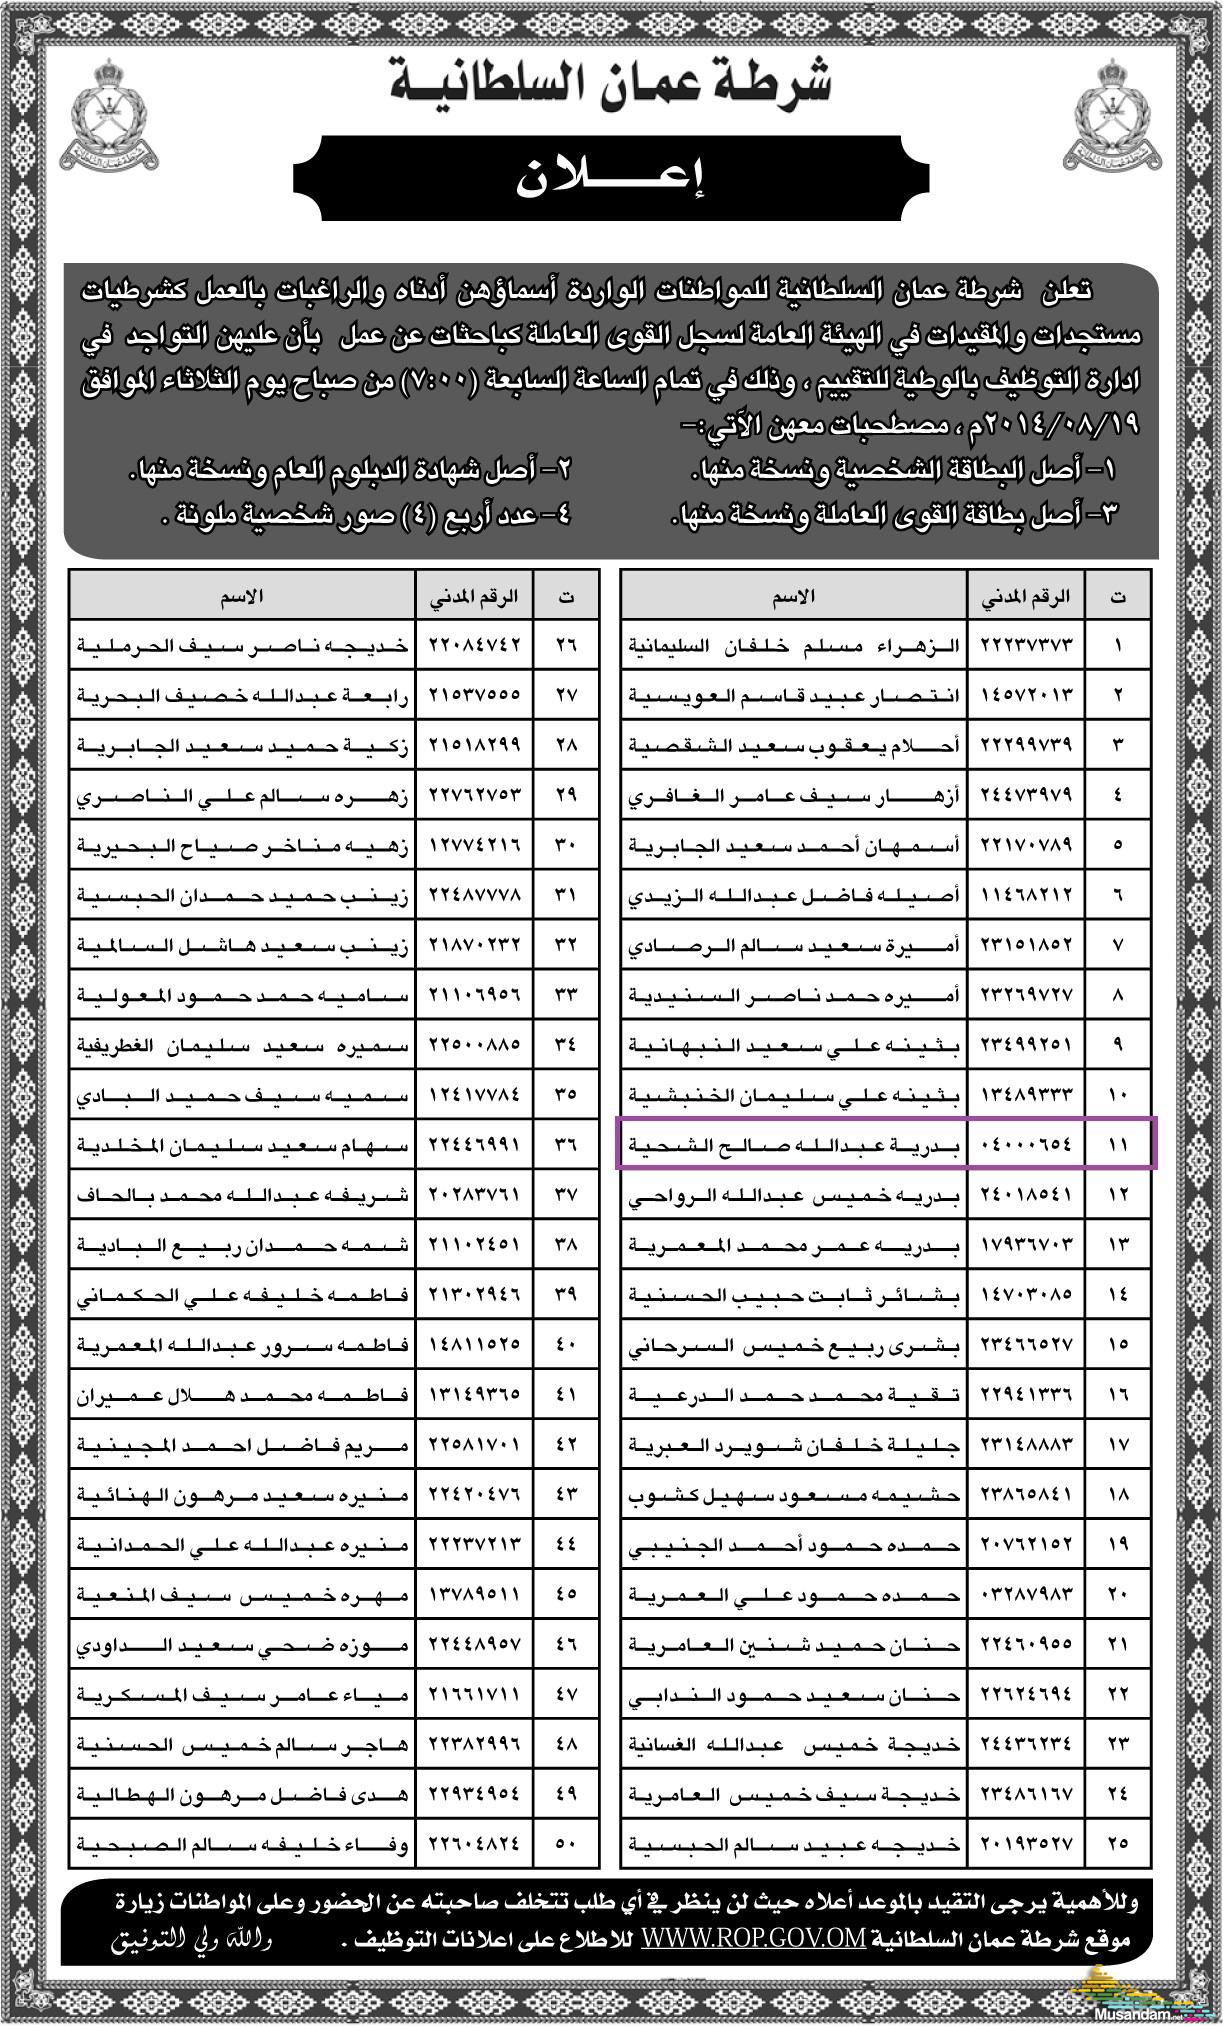 شرطة عمان السلطانية
إعلان
تعلن شرطة عمان السلطانية للمواطنات الواردة أسماؤهن أدناه والراغبات بالعمل كشرطيات
مستجدات والمقيدات في الهيئة العامة لسجل القوى العاملة كباحثات عن عمل بأن عليهن التواجد في
ادارة التوظيف بالوطية للتقييم ، وذلك في تمام الساعة السابعة (٧:٠٠) من صباح يوم الثلاثاء الموافق
٢٠١٤/٠٨/١٩م ، مصطحبات معهن الآتي:-
١- أصل البطاقة الشخصية ونسخة منها. ٢- أصل شهادة الدبلوم العام ونسخة منها.
٣- أصل بطاقة القوى العاملة ونسخة منها. ٤- عدد أربع (٤) صور شخصية ملونة .
ت الرقم المدني الاسم
١ ٢٢٢٣٧٣٧٣ الزهراء مسلم خلفان السليمانية
٢ ١٤٥٧٢٠١٣ انتصار عبيد قاسم العويسية
٣ ٢٢٢٩٩٧٣٩ أحلام يعقوب سعيد الشقصية
٤ ٢٤٤٧٣٩٧٩ أزهار سيف عامر الغافري
٥ ٢٢١٧٠٧٨٩ أسمهان أحمد سعيد الجابرية
٦ ١١٤٦٨٢١٢ أصيله فاضل عبدالله الزيدي
٧ ٢٣١٥١٨٥٢ أميرة سعيد سالم الرصادي
٨ ٢٣٢٦٩٧٢٧ أميره حمد ناصر السنيدية
٩ ٢٣٤٩٩٢٥١ بثينه علي سعيد النبهانية
١٠ ١٣٤٨٩٣٣٣ بثينه علي سليمان الخنبشية
١١ ٠٤٠٠٠٦٥٤ بدرية عبدالله صالح الشحية
١٢ ٢٤٠١٨٥٤١ بدريه خميس عبدالله الرواحي
١٣ ١٧٩٣٦٧٠٣ بدريه عمر محمد المعمرية
١٤ ١٤٧٠٣٠٨٥ بشائر ثابت حبيب الحسنية
١٥ ٢٣٤٦٦٥٢٧ بشرى ربيع خميس السرحاني
١٦ ٢٢٩٤١٣٣٦ تقية محمد حمد الدرعية
١٧ ٢٣١٤٨٨٨٣ جليلة خلفان شويرد العبرية
١٨ ٢٣٨٦٥٨٤١ حشيمه مسعود سهيل كشوب
١٩ ٢٠٧٦٢١٥٢ حمده حمود أحمد الجنيبي
٢٠ ٠٣٢٨٧٩٨٣ حمده حمود علي العمرية
٢١ ٢٢٤٦٠٩٥٥ حنان حميد شنين العامرية
٢٢ ٢٢٦٢٤٦٩٤ حنان سعيد حمود الندابي
٢٣ ٢٤٤٣٦٢٣٤ خديجة خميس عبدالله الغسانية
٢٤ ٢٣٤٨٦١٦٧ خديجة سيف خميس العامرية
٢٥ ٢٠١٩٣٥٢٧ خديجه عبيد سالم الحبسية
ت الرقم المدني الاسم
٢٦ ٢٢٠٨٤٧٤٢ خديجه ناصر سيف الحرملية
٢٧ ٢١٥٣٧٥٥٥ رابعة عبدالله خصيف البحرية
٢٨ ٢١٥١٨٢٩٩ زكية حميد سعيد الجابرية
٢٩ ٢٢٧٦٢٧٥٣ زهره سالم علي الناصري
٣٠ ١٢٧٧٤٢١٦ زهيه مناخر صياح البحيرية
٣١ ٢٢٤٨٧٧٧٨ زينب حميد حمدان الحبسية
٣٢ ٢١٨٧٠٢٣٢ زينب سعيد هاشل السالمية
٣٣ ٢١١٠٦٩٥٦ ساميه حمد حمود المعولية
٣٤ ٢٢٥٠٠٨٨٥ سميره سعيد سليمان الغطريفية
٣٥ ١٢٤١٧٧٨٤ سميه سيف حميد البادي
٣٦ ٢٢٤٤٦٩٩١ سهام سعيد سليمان المخلدية
٣٧ ٢٠٢٨٣٧٦١ شريفه عبدالله محمد بالحاف
٣٨ ٢١١٠٢٤٥١ شمه حمدان ربيع البادية
٣٩ ٢١٣٠٢٩٤٦ فاطمه خليفه علي الحكماني
٤٠ ١٤٨١١٥٢٥ فاطمه سرور عبدالله المعمرية
٤١ ١٣١٤٩٣٦٥ فاطمه محمد هلال عميران
٤٢ ٢٢٥٨١٧٠١ مريم فاضل احمد المجينية
٤٣ ٢٢٤٢٠٤٧٦ منيره سعيد مرهون الهنائية
٤٤ ٢٢٢٣٧٢١٣ منيره عبدالله علي الحمدانية
٤٥ ١٣٧٨٩٥١١ مهره خميس سيف المنعية
٤٦ ٢٢٤٤٨٩٥٧ موزه ضحي سعيد الداودي
٤٧ ٢١٦٦١٧١١ مياء عامر سيف المسكرية
٤٨ ٢٢٣٨٢٩٩٦ هاجر سالم خميس الحسنية
٤٩ ٢٢٩٣٤٩٥٤ هدى فاضل مرهون الهطالية
٥٠ ٢٢٦٠٤٨٢٤ وفاء خليفه سالم الصبحية
وللأهمية يرجى التقيد بالموعد أعلاه حيث لن ينظر في أي طلب تتخلف صاحبته عن الحضور وعلى المواطنات زيارة
موقع شرطة عمان السلطانية WWW.ROP.GOV.OM للاطلاع على اعلانات التوظيف . والله ولي التوفيق
Musandam.net